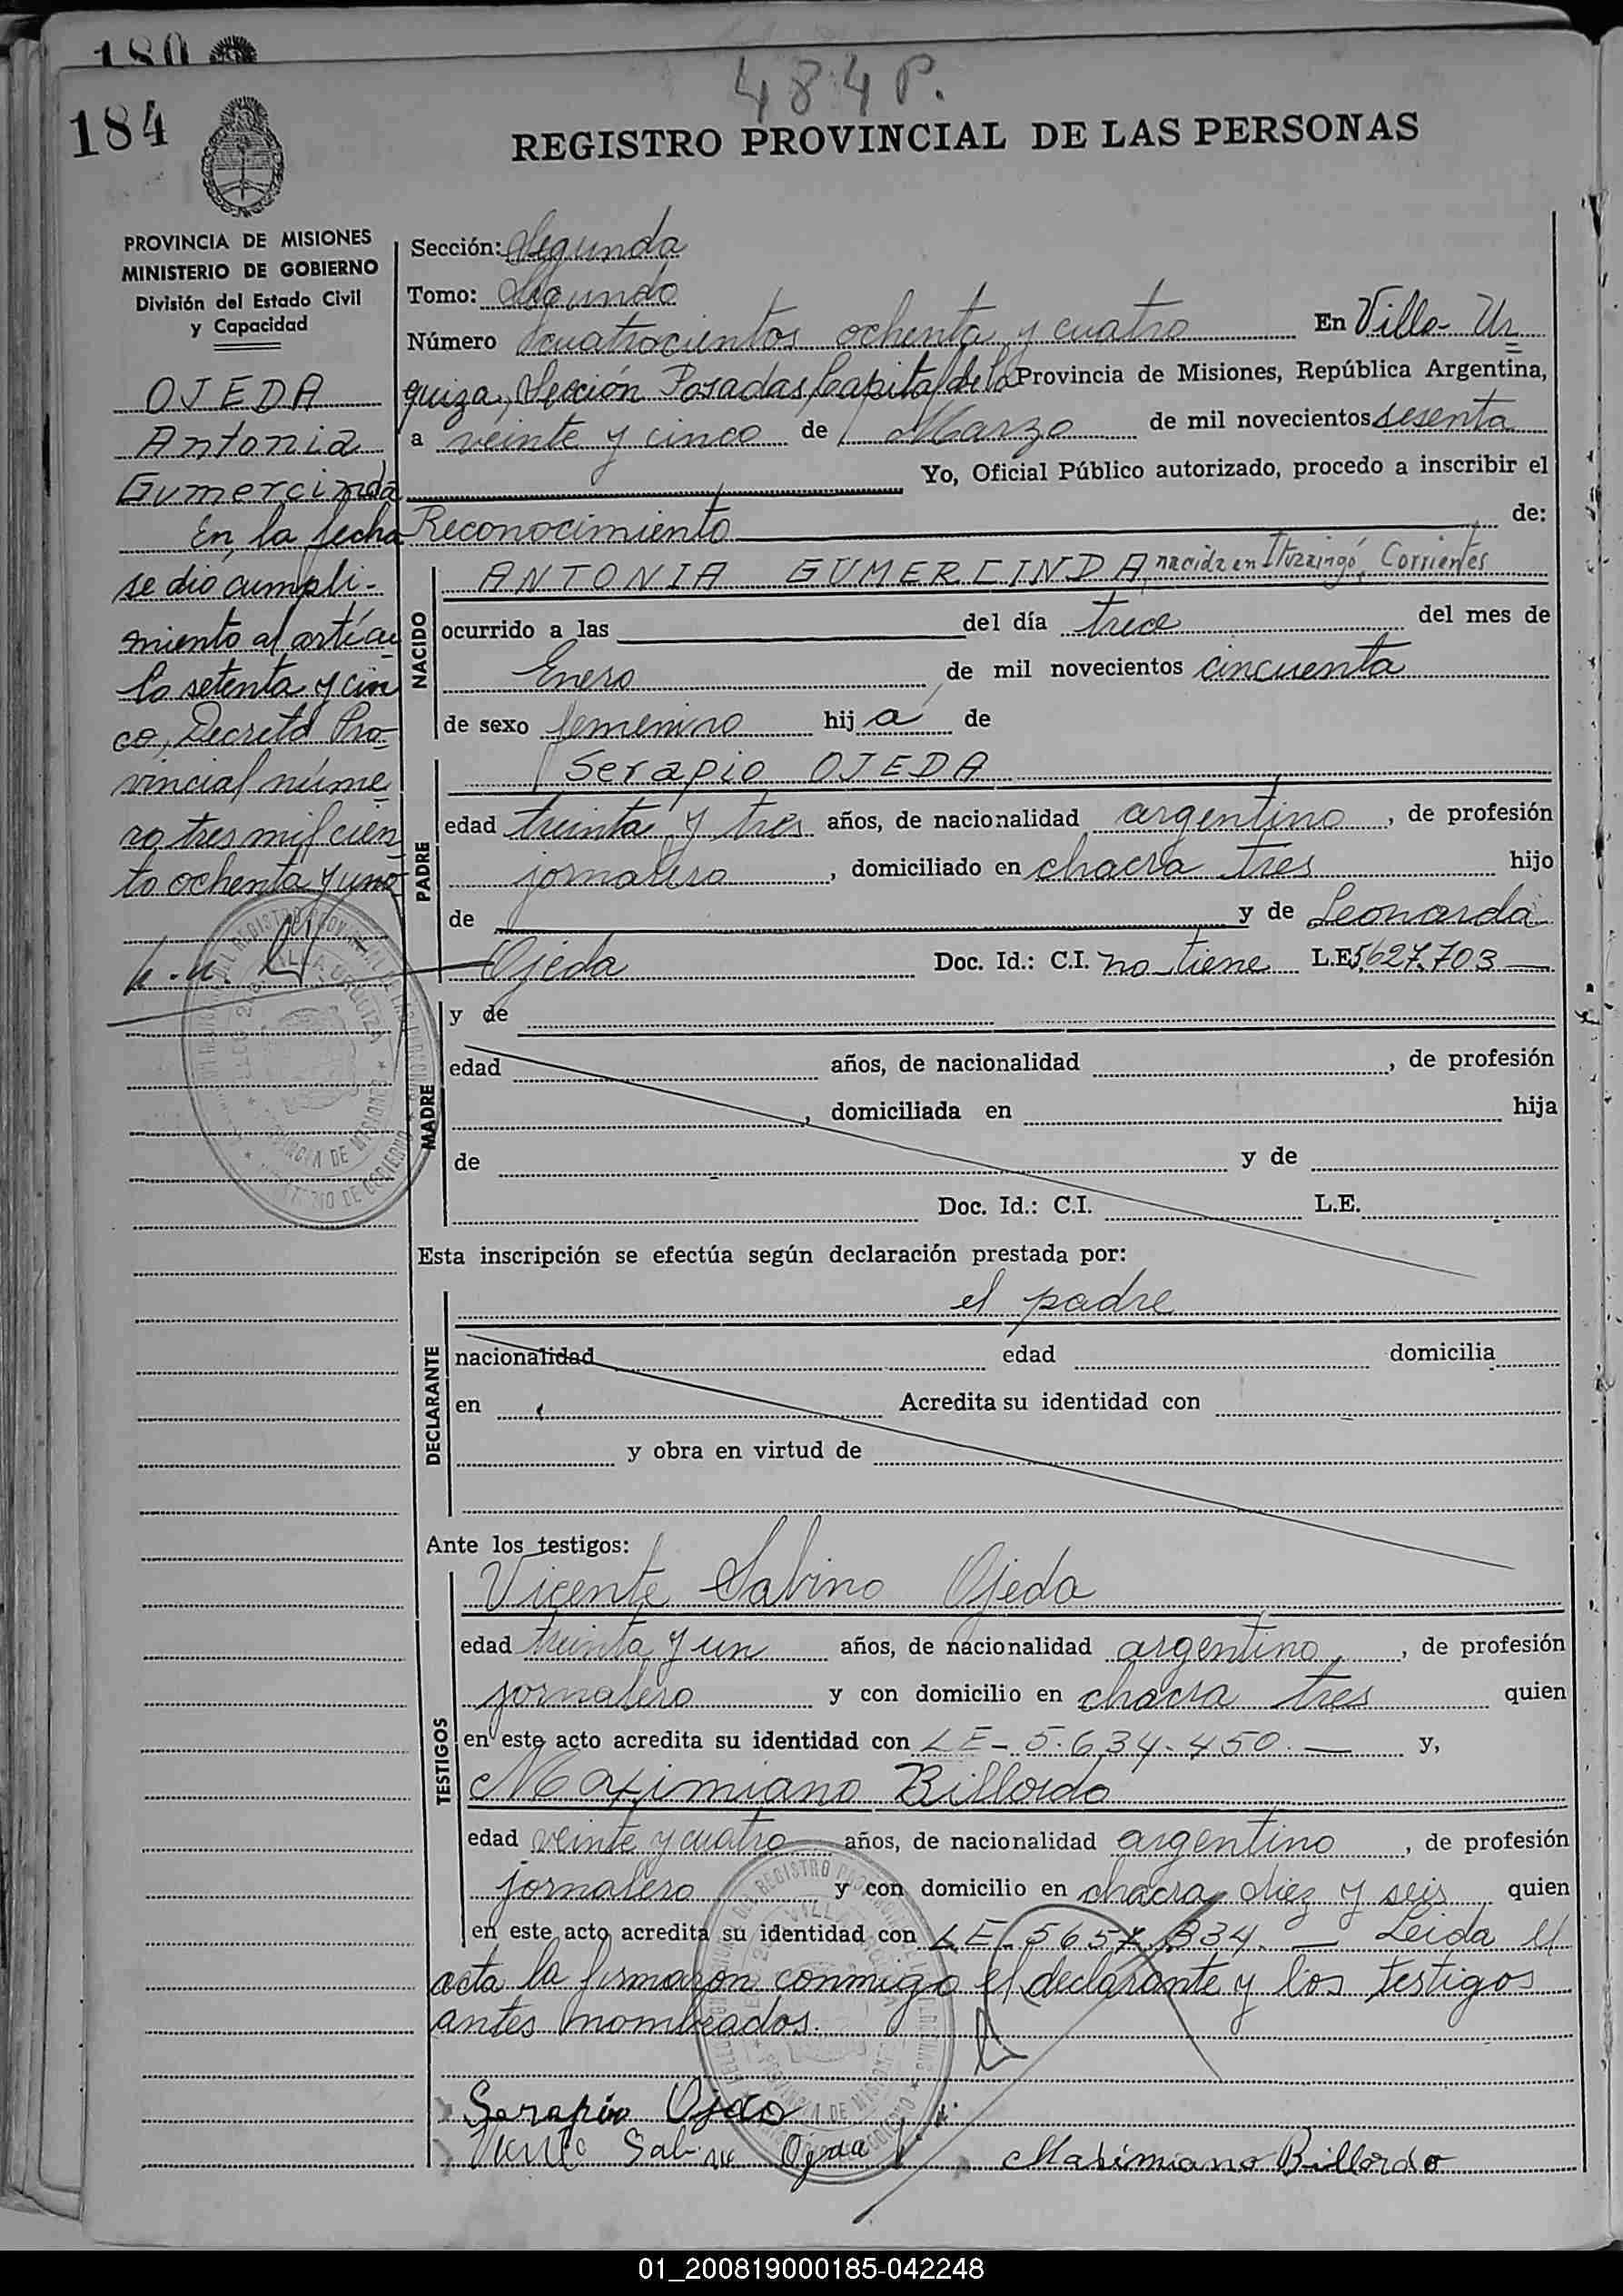 180
184
484 P.
REGISTRO PROVINCIAL DE LAS PERSONAS
PROVINCIA DE MISIONES
MINISTERIO DE GOBIERNO
División del Estado Civil
y Capacidad
OJEDA
Antonia
Gumercinda
En la fecha
se dió cumpli-
miento al artícu
lo setenta y cin
co, Decreto Pro-
vincial núme
ro tres mil cien
to ochenta y uno
Sección: Segunda
Tomo: Segundo
Número cuatrocientos ochenta y cuatro En Villa Ur
quiza, Sección Posadas, Capital de la Provincia de Misiones, República Argentina,
a veinte y cinco de Marzo de mil novecientos sesenta
Yo, Oficial Público autorizado, procedo a inscribir el
Reconocimiento de:
NACIDO
ANTONIA GUMERCINDA, nacida en Ituzaingó, Corrientes
ocurrido a las del día trece del mes de
Enero de mil novecientos cincuenta
de sexo femenino hij a de
PADRE
Serapio OJEDA
edad treinta y tres años, de nacionalidad argentino, de profesión
jornalero, domiciliado en chacra tres hijo
de y de Leonarda
Ojeda Doc. Id.: C.I. no tiene L.E. 5627.703
MADRE
y de
edad años, de nacionalidad , de profesión
, domiciliada en hija
de y de
Doc. Id.: C.I. L.E.
Esta inscripción se efectúa según declaración prestada por:
DECLARANTE
el padre
nacionalidad edad domicilia
en Acredita su identidad con
y obra en virtud de
Ante los testigos:
TESTIGOS
Vicente Sabino Ojeda
edad treinta y un años, de nacionalidad argentino, de profesión
jornalero y con domicilio en chacra tres quien
en este acto acredita su identidad con LE - 5.634.450. — y,
Maximiano Billordo
edad veinte y cuatro años, de nacionalidad argentino, de profesión
jornalero y con domicilio en chacra diez y seis quien
en este acto acredita su identidad con LE. — Leida el
acta la firmaron conmigo el declarante y los testigos
antes nombrados.
Serapio Ojeda
Sabino Ojeda
Maximiano Billordo
01_200819000185-042248